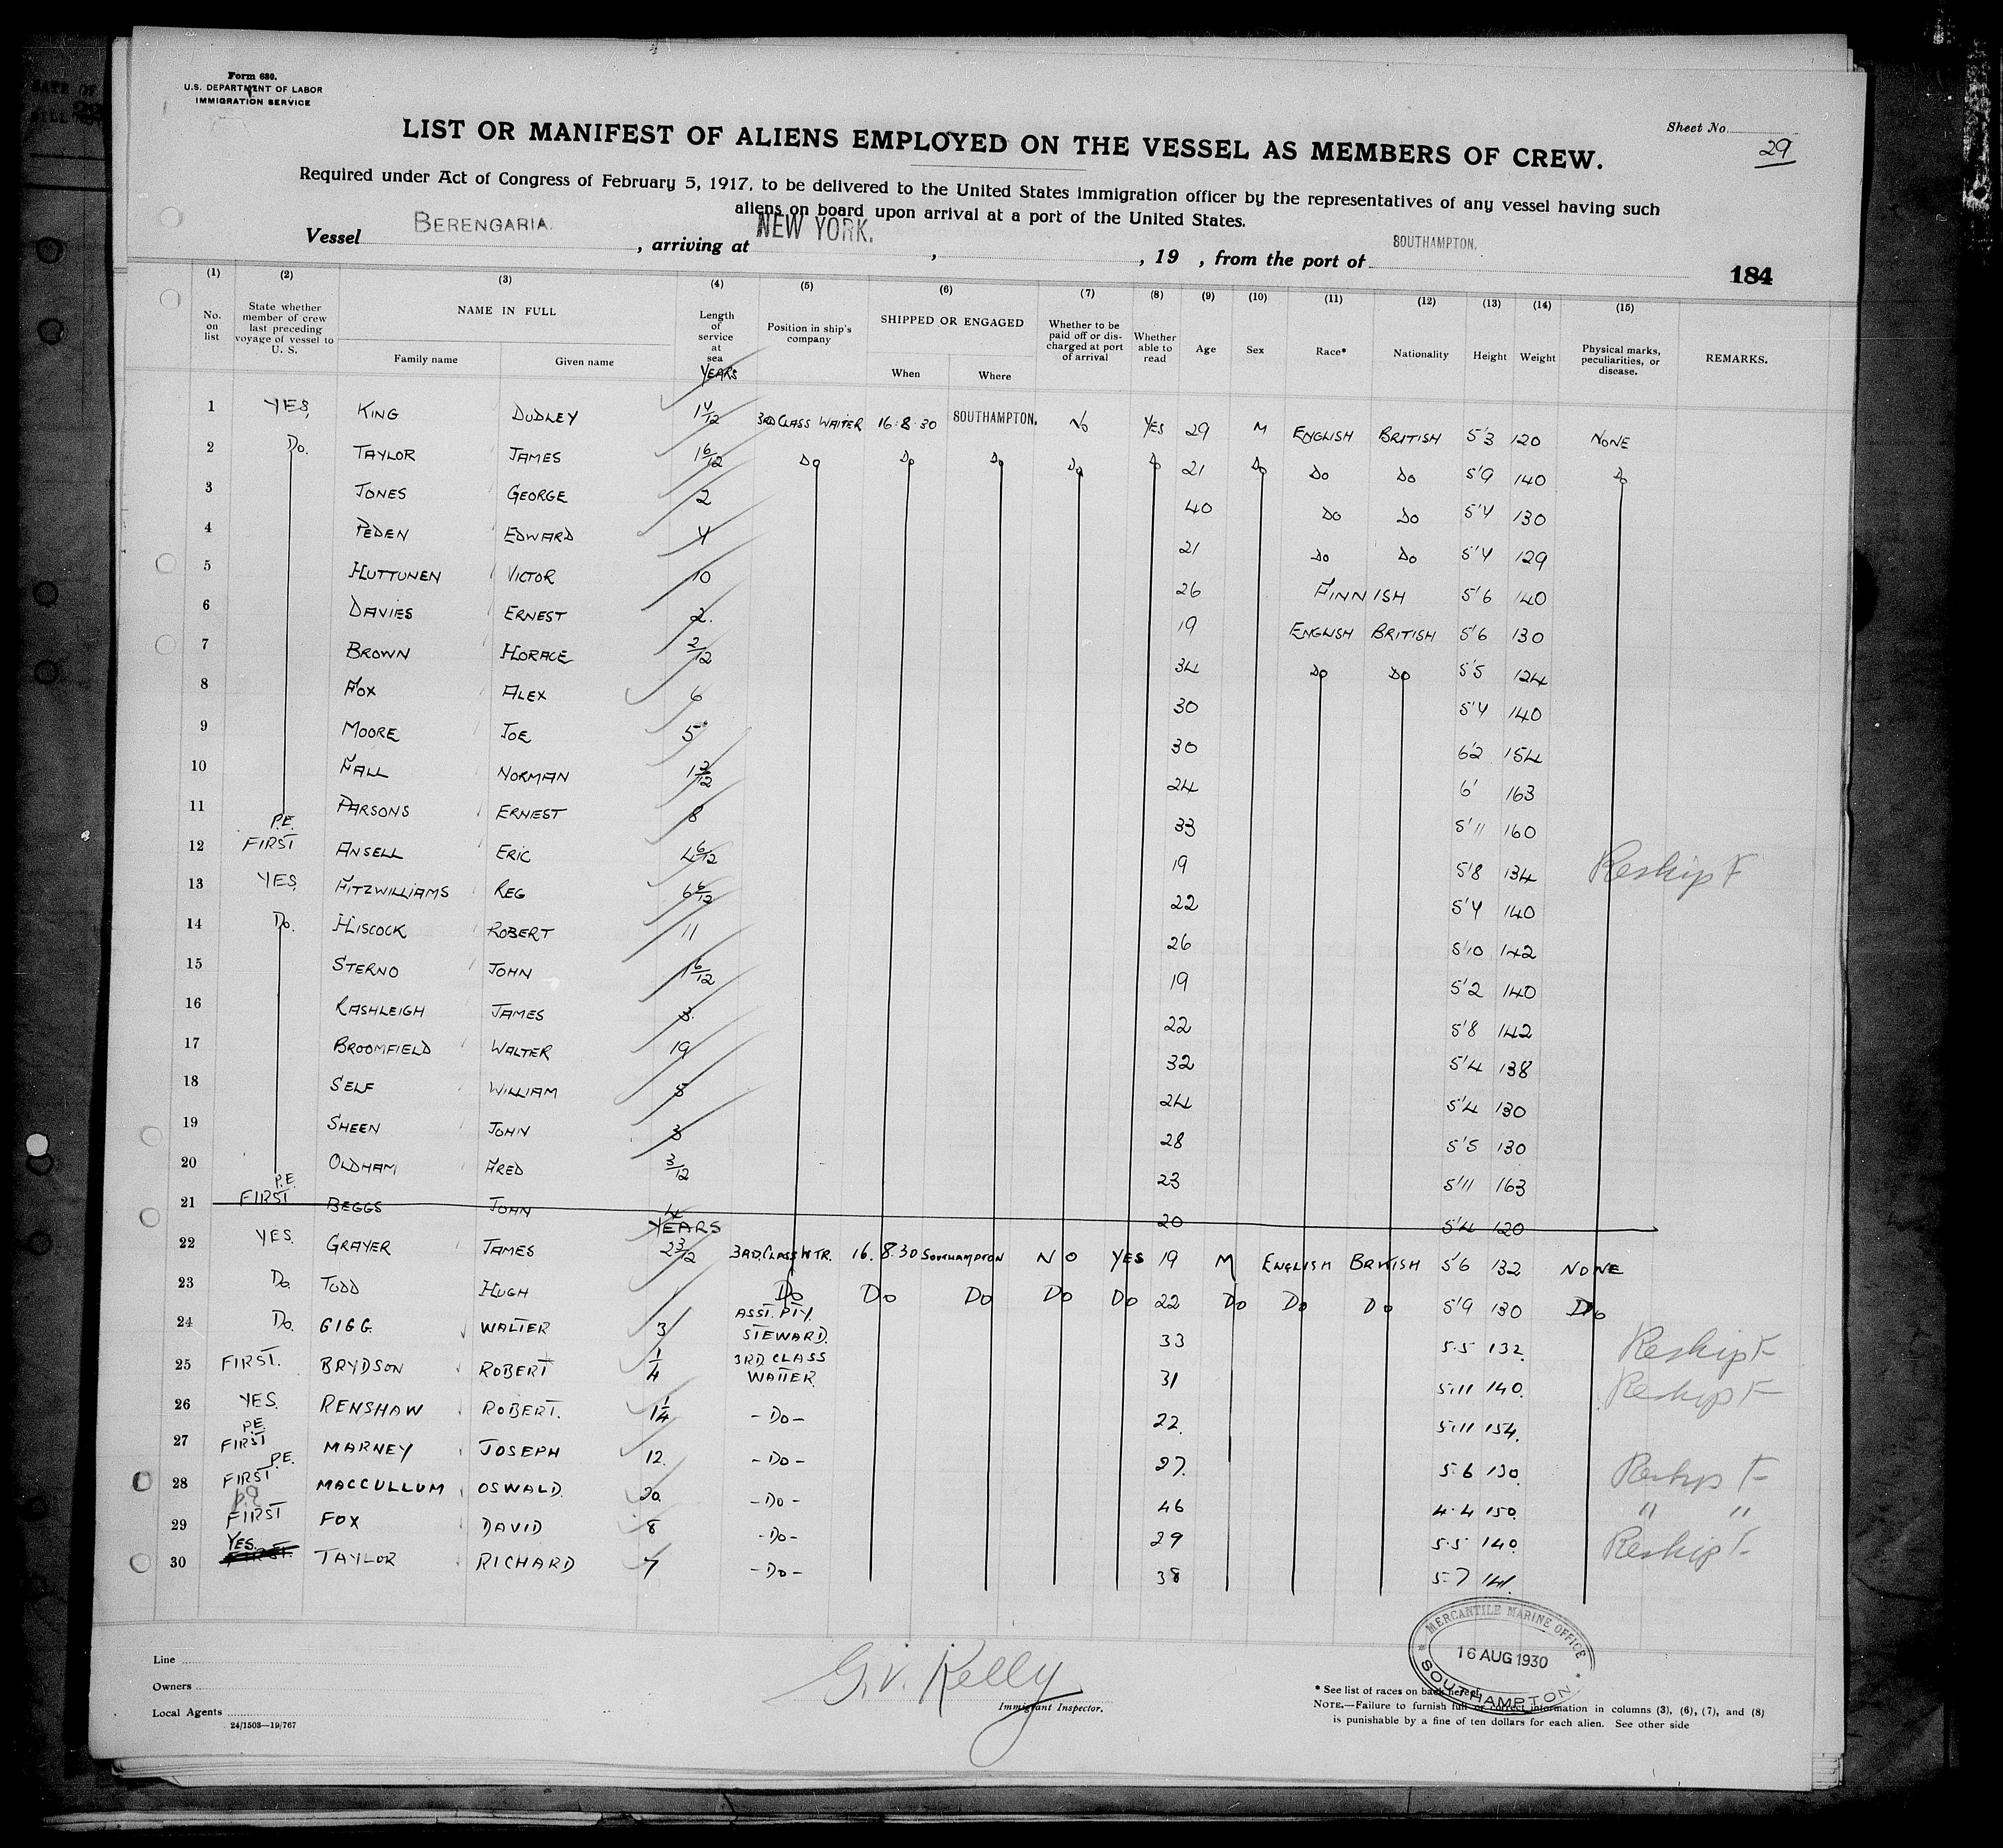 Form 680.
U.S. DEPARTMENT OF LABOR
IMMIGRATION SERVICE
Sheet No. 29
LIST OR MANIFEST OF ALIENS EMPLOYED ON THE VESSEL AS MEMBERS OF CREW.
Required under Act of Congress of February 5, 1917, to be delivered to the United States immigration officer by the representatives of any vessel having such
aliens on board upon arrival at a port of the United States.
Vessel BERENGARIA. , arriving at NEW YORK. , , 19 , from the port of SOUTHAMPTON.
184
(1) (2) (3) (4) (5) (6) (7) (8) (9) (10) (11) (12) (13) (14) (15)
No. on list State whether member of crew last preceding voyage of vessel to U. S. NAME IN FULL Family name Given name Length of service at sea YEARS Position in ship's company SHIPPED OR ENGAGED When Where Whether to be paid off or discharged at port of arrival Whether able to read Age Sex Race* Nationality Height Weight Physical marks, peculiarities, or disease. REMARKS.
1 YES, KING DUDLEY 1 4/12 3RD CLASS WAITER 16.8.30 SOUTHAMPTON. NO YES 29 M ENGLISH BRITISH 5'3 120 NONE
2 Do. TAYLOR JAMES 1 6/12 Do Do Do Do Do 21 Do Do Do 5'9 140 Do
3 JONES GEORGE 2 40 Do Do 5'4 130
4 PEDEN EDWARD 4 21 Do Do 5'4 129
5 HUTTUNEN VICTOR 10 26 FINNISH 5'6 140
6 DAVIES ERNEST 2. 19 ENGLISH BRITISH 5'6 130
7 BROWN HORACE 2/12 34 Do Do 5'5 124
8 FOX ALEX 6 30 5'4 140
9 MOORE JOE 5 30 6'2 154
10 FALL NORMAN 1 2/12 24 6' 163
11 PARSONS ERNEST 8 33 5'11 160
12 P.E. FIRST ANSELL ERIC 4 6/12 19 5'8 134 Reship F
13 YES, FITZWILLIAMS REG 6 6/12 22 5'4 140
14 Do. HISCOCK ROBERT 11 26 5'10 142
15 STERNO JOHN 1 6/12 19 5'2 140
16 RASHLEIGH JAMES 3. 22 5'8 142
17 BROOMFIELD WALTER 19 32 5'4 138
18 SELF WILLIAM 5 24 5'4 130
19 SHEEN JOHN 3 28 5'5 130
20 OLDHAM FRED 3/12 23 5'11 163
21 P.E. FIRST BEGGS JOHN 4 20 5'4 120
YEARS
22 YES. GRAYER JAMES 2 3/12 3RD.CLASS WTR. 16.8.30 SOUTHAMPTON NO YES 19 M ENGLISH BRITISH 5'6 132 NONE
23 Do. TODD HUGH 1 Do Do Do Do Do 22 Do Do Do 5'9 130 Do
24 Do. GIGG. WALTER 3 ASST. PTY. STEWARD. 33 5.5 132. Reship F
25 FIRST. BRYDSON ROBERT 1/4 3RD CLASS WAITER. 31 5.11 140. Reship F
26 YES. RENSHAW ROBERT. 1 1/4 -Do- 22. 5.11 154.
27 P.E. FIRST MARNEY JOSEPH 12. -Do- 27. 5.6 130. Reship F
28 P.E. FIRST MACCULLUM OSWALD. 20. -Do- 46 4.4 150. " "
29 P.E. FIRST FOX DAVID 8 -Do- 29 5.5 140. Reship F
30 YES. FIRST. TAYLOR RICHARD 7 -Do- 38 5.7 141.
Line
Owners
Local Agents
24/1503—19/767
G. V. Kelly
Immigrant Inspector.
MERCANTILE MARINE OFFICE
16 AUG 1930
SOUTHAMPTON
* See list of races on back hereof.
NOTE.—Failure to furnish full or correct information in columns (3), (6), (7), and (8)
is punishable by a fine of ten dollars for each alien. See other side